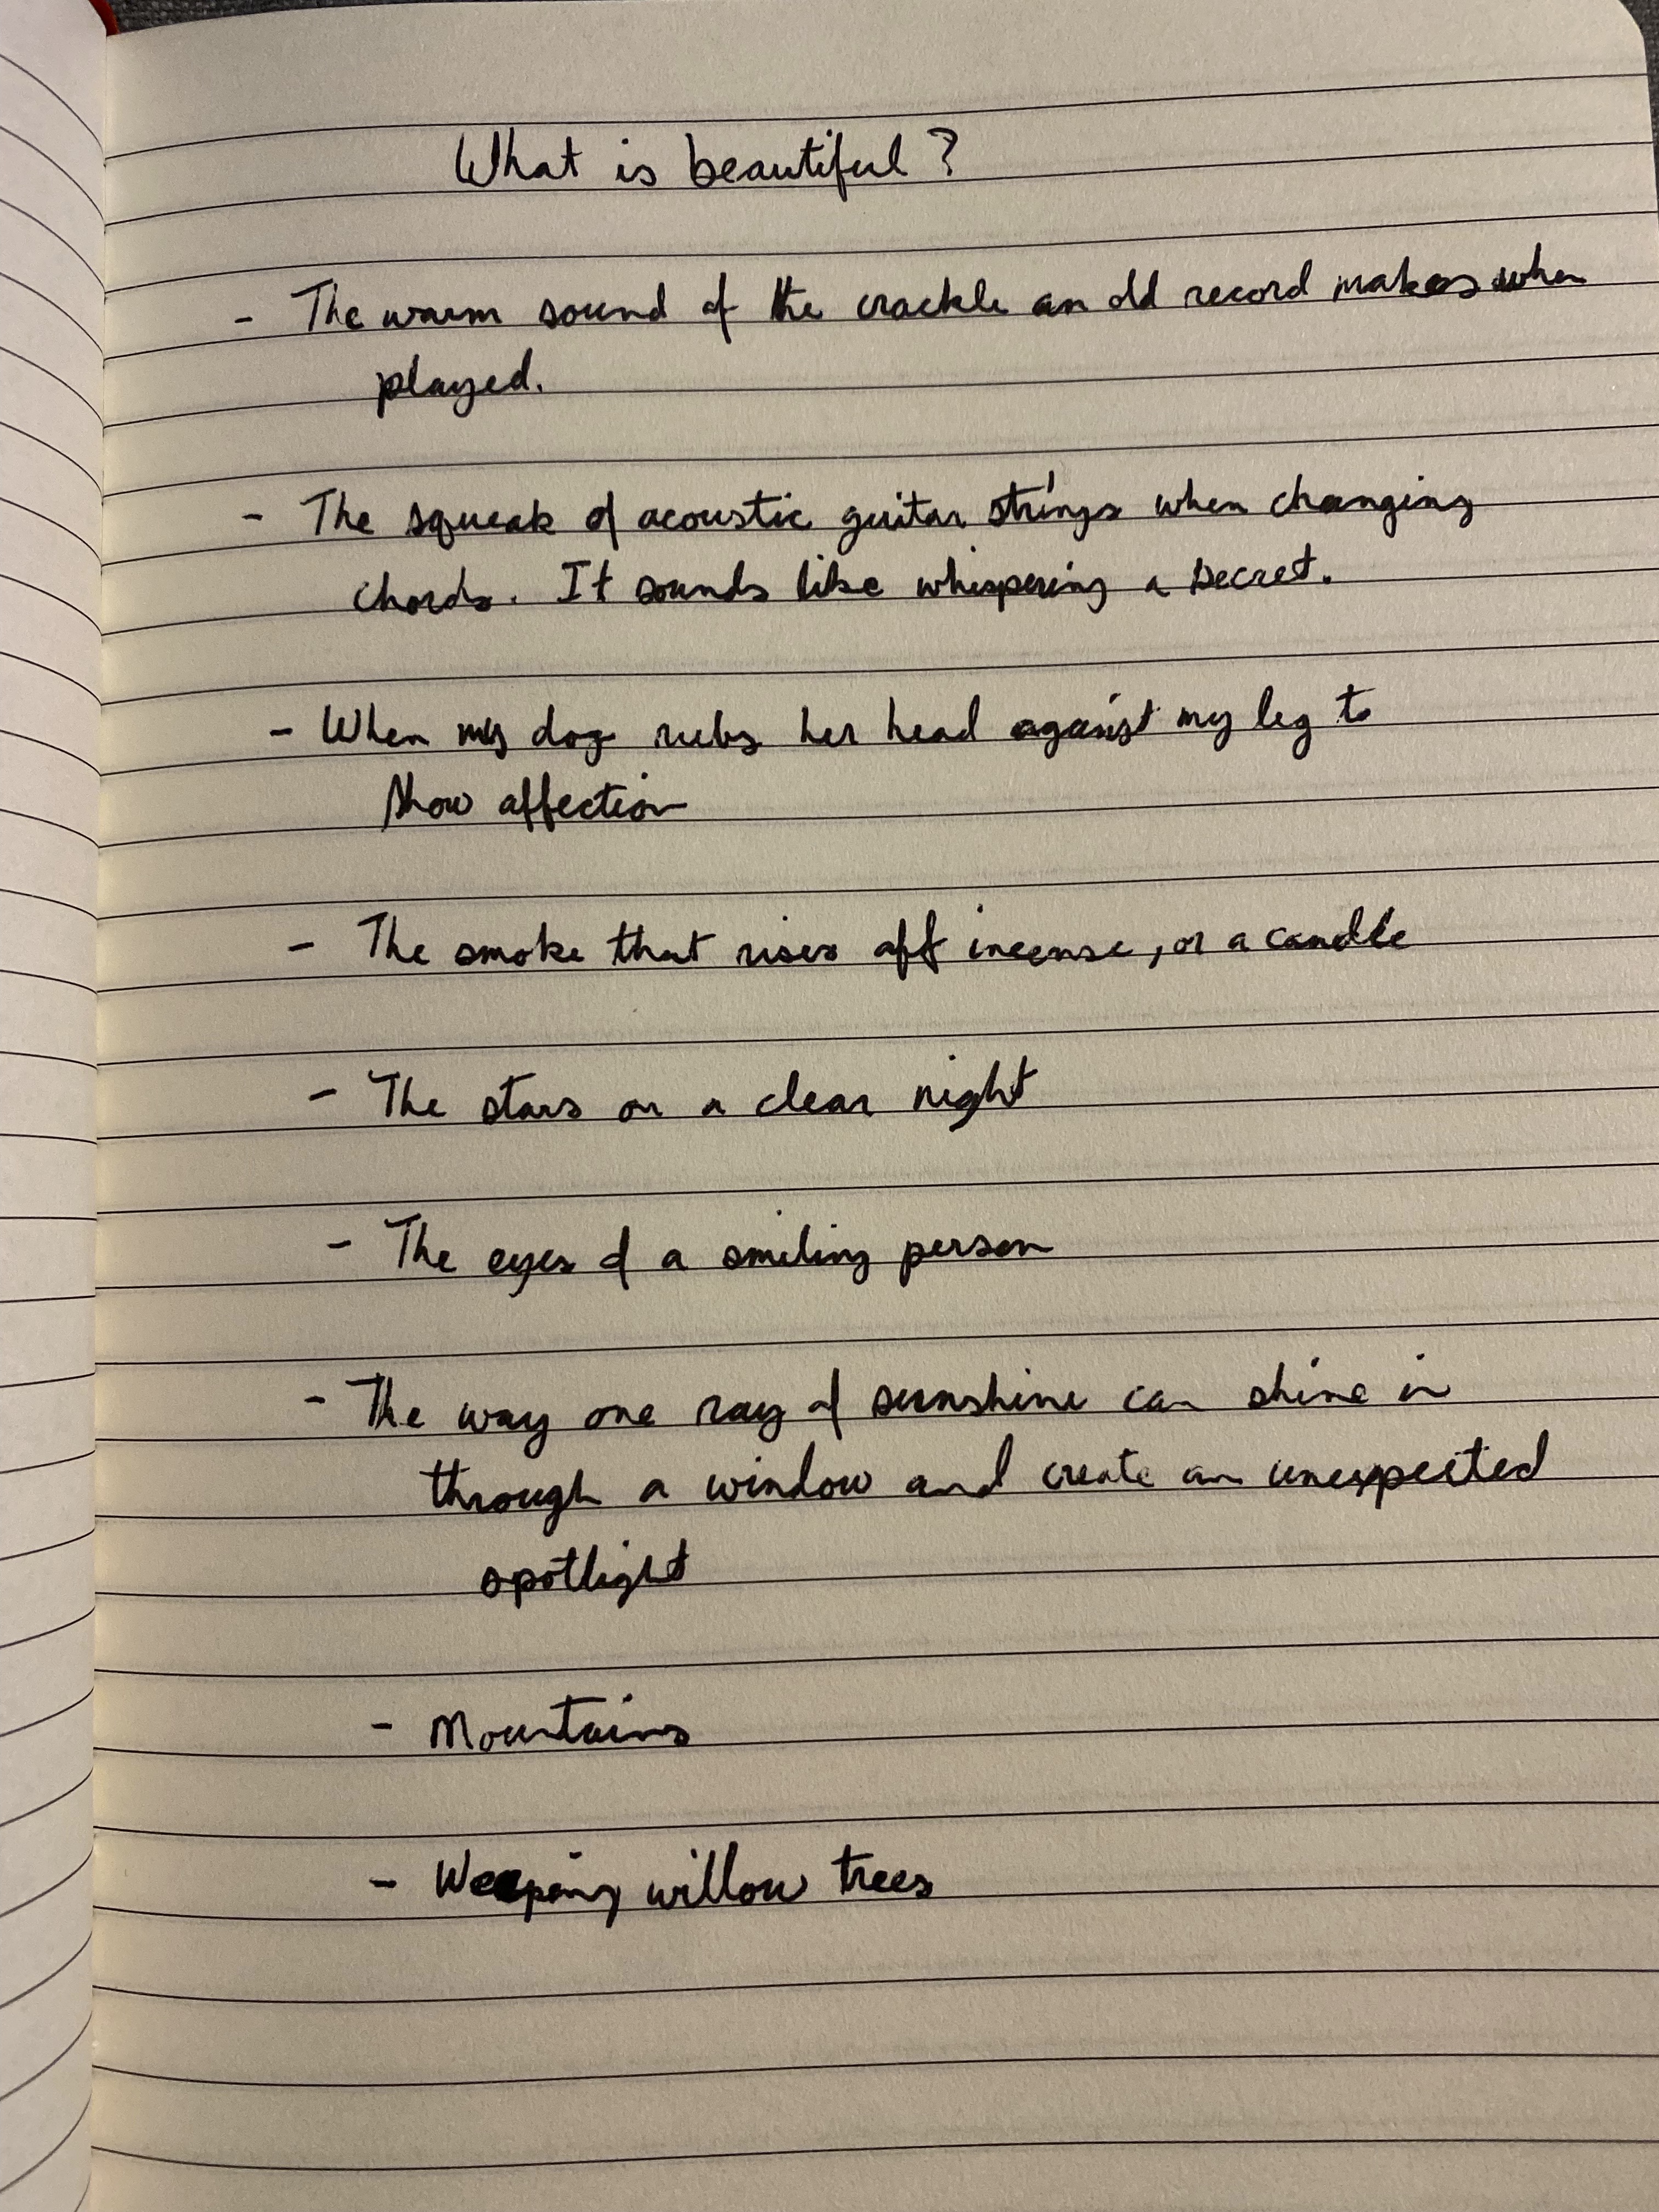 What is beautiful?
- The warm sound of the crackle an old record makes when
played.
- The squeak of acoustic guitar strings when changing
chords. It sounds like whispering a secret.
- When my dog rubs her head against my leg to
show affection
- The smoke that rises off incense, or a candle
- The stars on a clear night
- The eyes of a smiling person
- The way one ray of sunshine can shine in
through a window and create an unexpected
spotlight
- Mountains
- Weeping willow trees